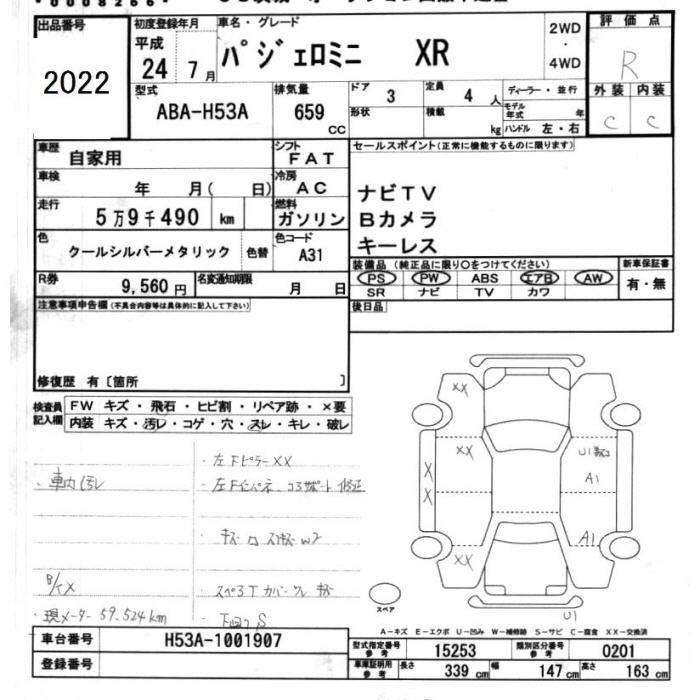 出品番号 2022
初度登録年月 平成 24 7月
車名・グレード パジェロミニ XR
2WD ・ 4WD
評価点 R
外装 内装
C C
型式 ABA-H53A
排気量 659 CC
ドア 3
形状
定員 4 人
積載 kg
ディーラー・並行
モデル年式 年
ハンドル 左・右
車歴 自家用
シフト FAT
車検 年 月( 日)
冷房 AC
走行 5万9千490 km
燃料 ガソリン
色 クールシルバーメタリック 色替
色コード A31
R券 9,560円
名変通知期限 月 日
セールスポイント(正常に機能するものに限ります)
ナビTV
Bカメラ
キーレス
装備品 (純正品に限り○をつけてください)
PS PW ABS エアB AW
SR ナビ TV カワ
新車保証書 有・無
後日品
注意事項申告欄(不具合内容等は具体的に記入して下さい)
修復歴 有〔箇所 〕
検査員記入欄
FW キズ・飛石・ヒビ割・リペア跡・×要
内装 キズ・汚レ・コゲ・穴・スレ・キレ・破レ
・車内汚レ
・左FピラーXX
B/イX
・現メーター 59.524km
XX
XX
XX
X
X
A1
A1
U1
スペア
A-キズ E-エクボ U-凹み W-補修跡 S-サビ C-腐食 XX-交換済
車台番号 H53A-1001907
登録番号
型式指定番号 参考 15253
類別区分番号 参考 0201
車庫証明用 参考 長さ 339 cm 幅 147 cm 高さ 163 cm